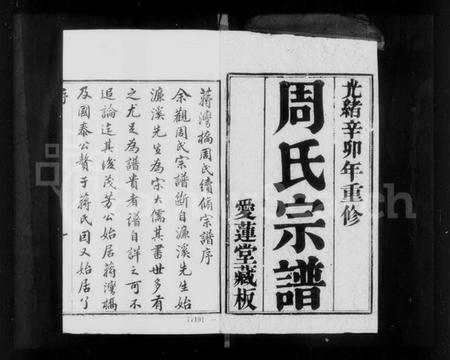 光緒辛卯年重修
周氏宗譜
愛蓮堂藏板
蔣灣橋周氏續修宗譜序
余觀周氏宗譜斷自濂溪先生始
濂溪先生為宋大儒其書世多有
之尤足為譜貴者譜自詳之可不
追論迨其後茂芳公始居蔣灣橋
及國泰公贅于蔣氏因又始居丫
序
77191